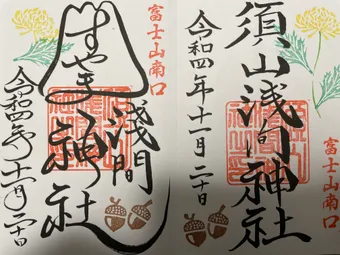 富士山南口
須山浅间神社
令和四年十一月二十日
富士山南口
すやま
浅间
神社
令和四年十一月二十日